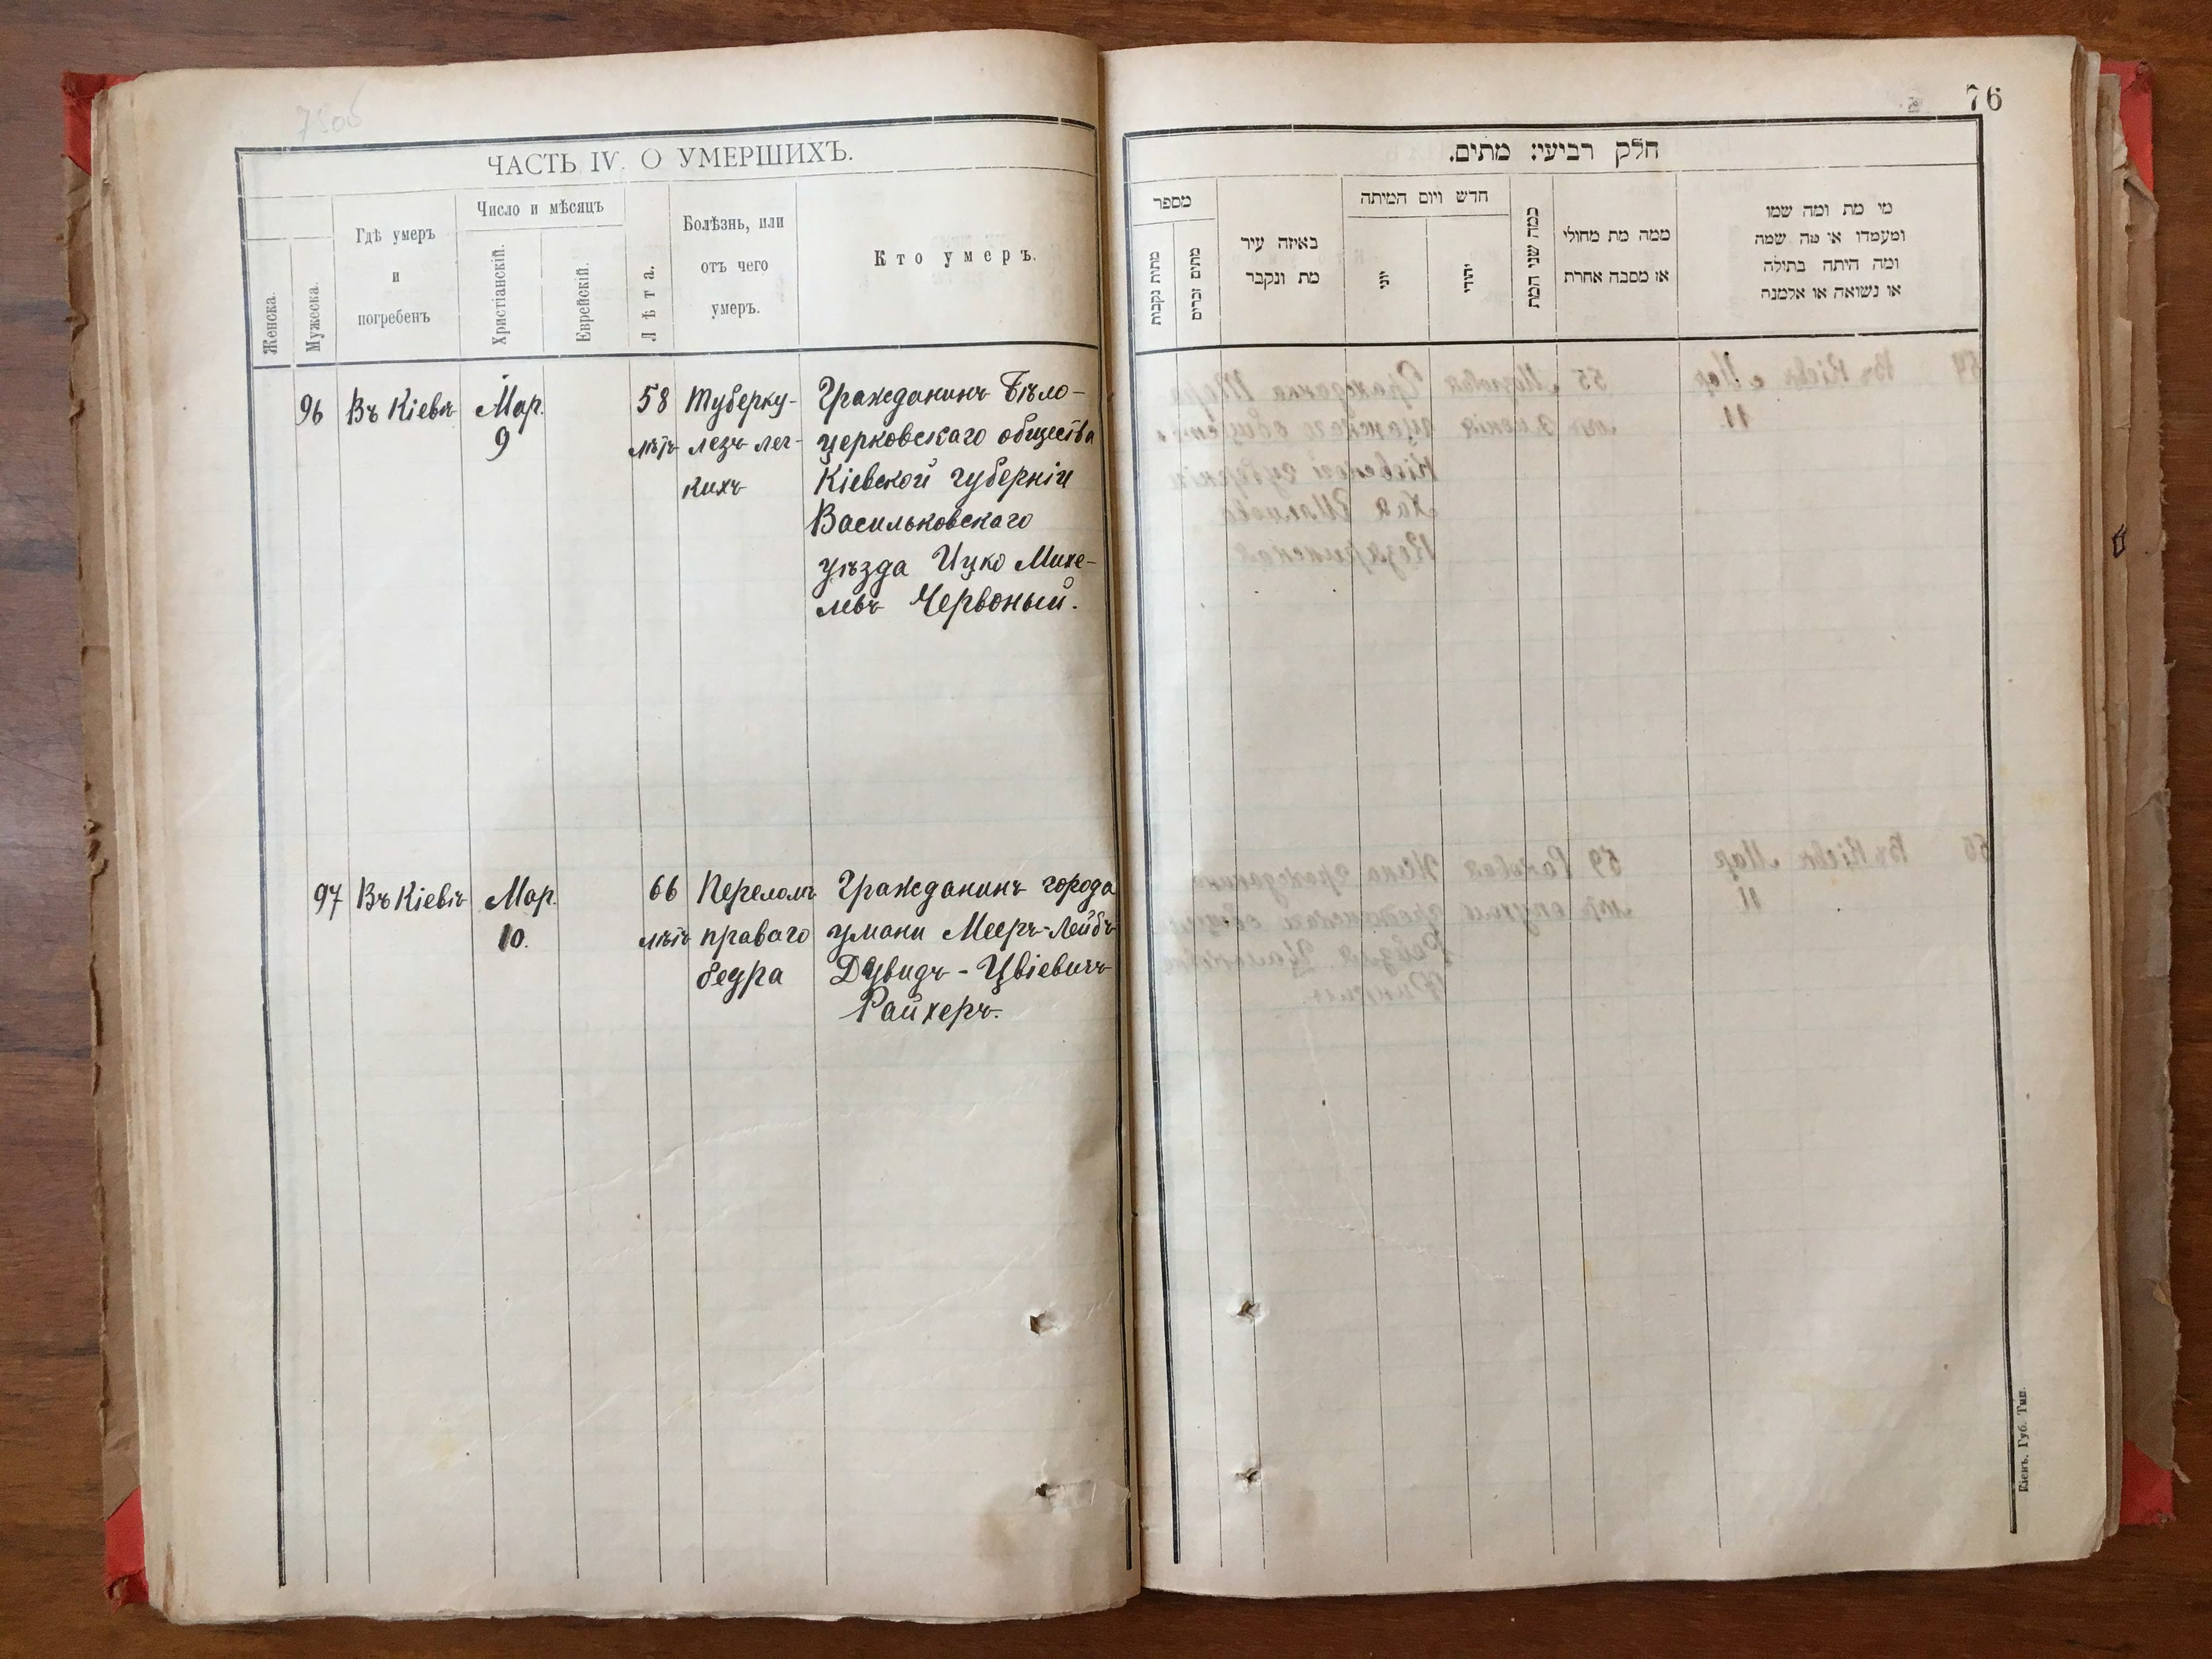 76
ЧАСТЬ IV. О УМЕРШИХЪ.
Женска.
Мужеска.
Гдѣ умеръ
и
погребенъ
Число и мѣсяцъ
Христіанскій.
Еврейскій.
Лѣта.
Болѣзнь, или
отъ чего
умеръ.
Кто умеръ.
96
Въ Кіевѣ
Мар.
9
58
лѣтъ
Туберку-
лезъ лег-
кихъ
Гражданинъ Бѣло-
церковскаго общества
Кіевской губерніи
Васильковскаго
уѣзда Ицко Михе-
левъ Червоный.
97
Въ Кіевѣ
Мар.
10.
66
лѣтъ
Переломъ
праваго
бедра
Гражданинъ города
Умани Мееръ-Лейбъ
Дувидъ-Цвіевичъ
Райхеръ.
חלק רביעי: מתים.
מספר
מתות נקבות
מתים זכרים
באיזה עיר
מת ונקבר
חדש ויום המיתה
יוני
יהודי
כמה שני המת
ממה מת מחולי
או מסבה אחרת
מי מת ומה שמו
ומעמדו או מה שמה
ומה היתה בתולה
או נשואה או אלמנה
Кіевъ. Губ. Тип.